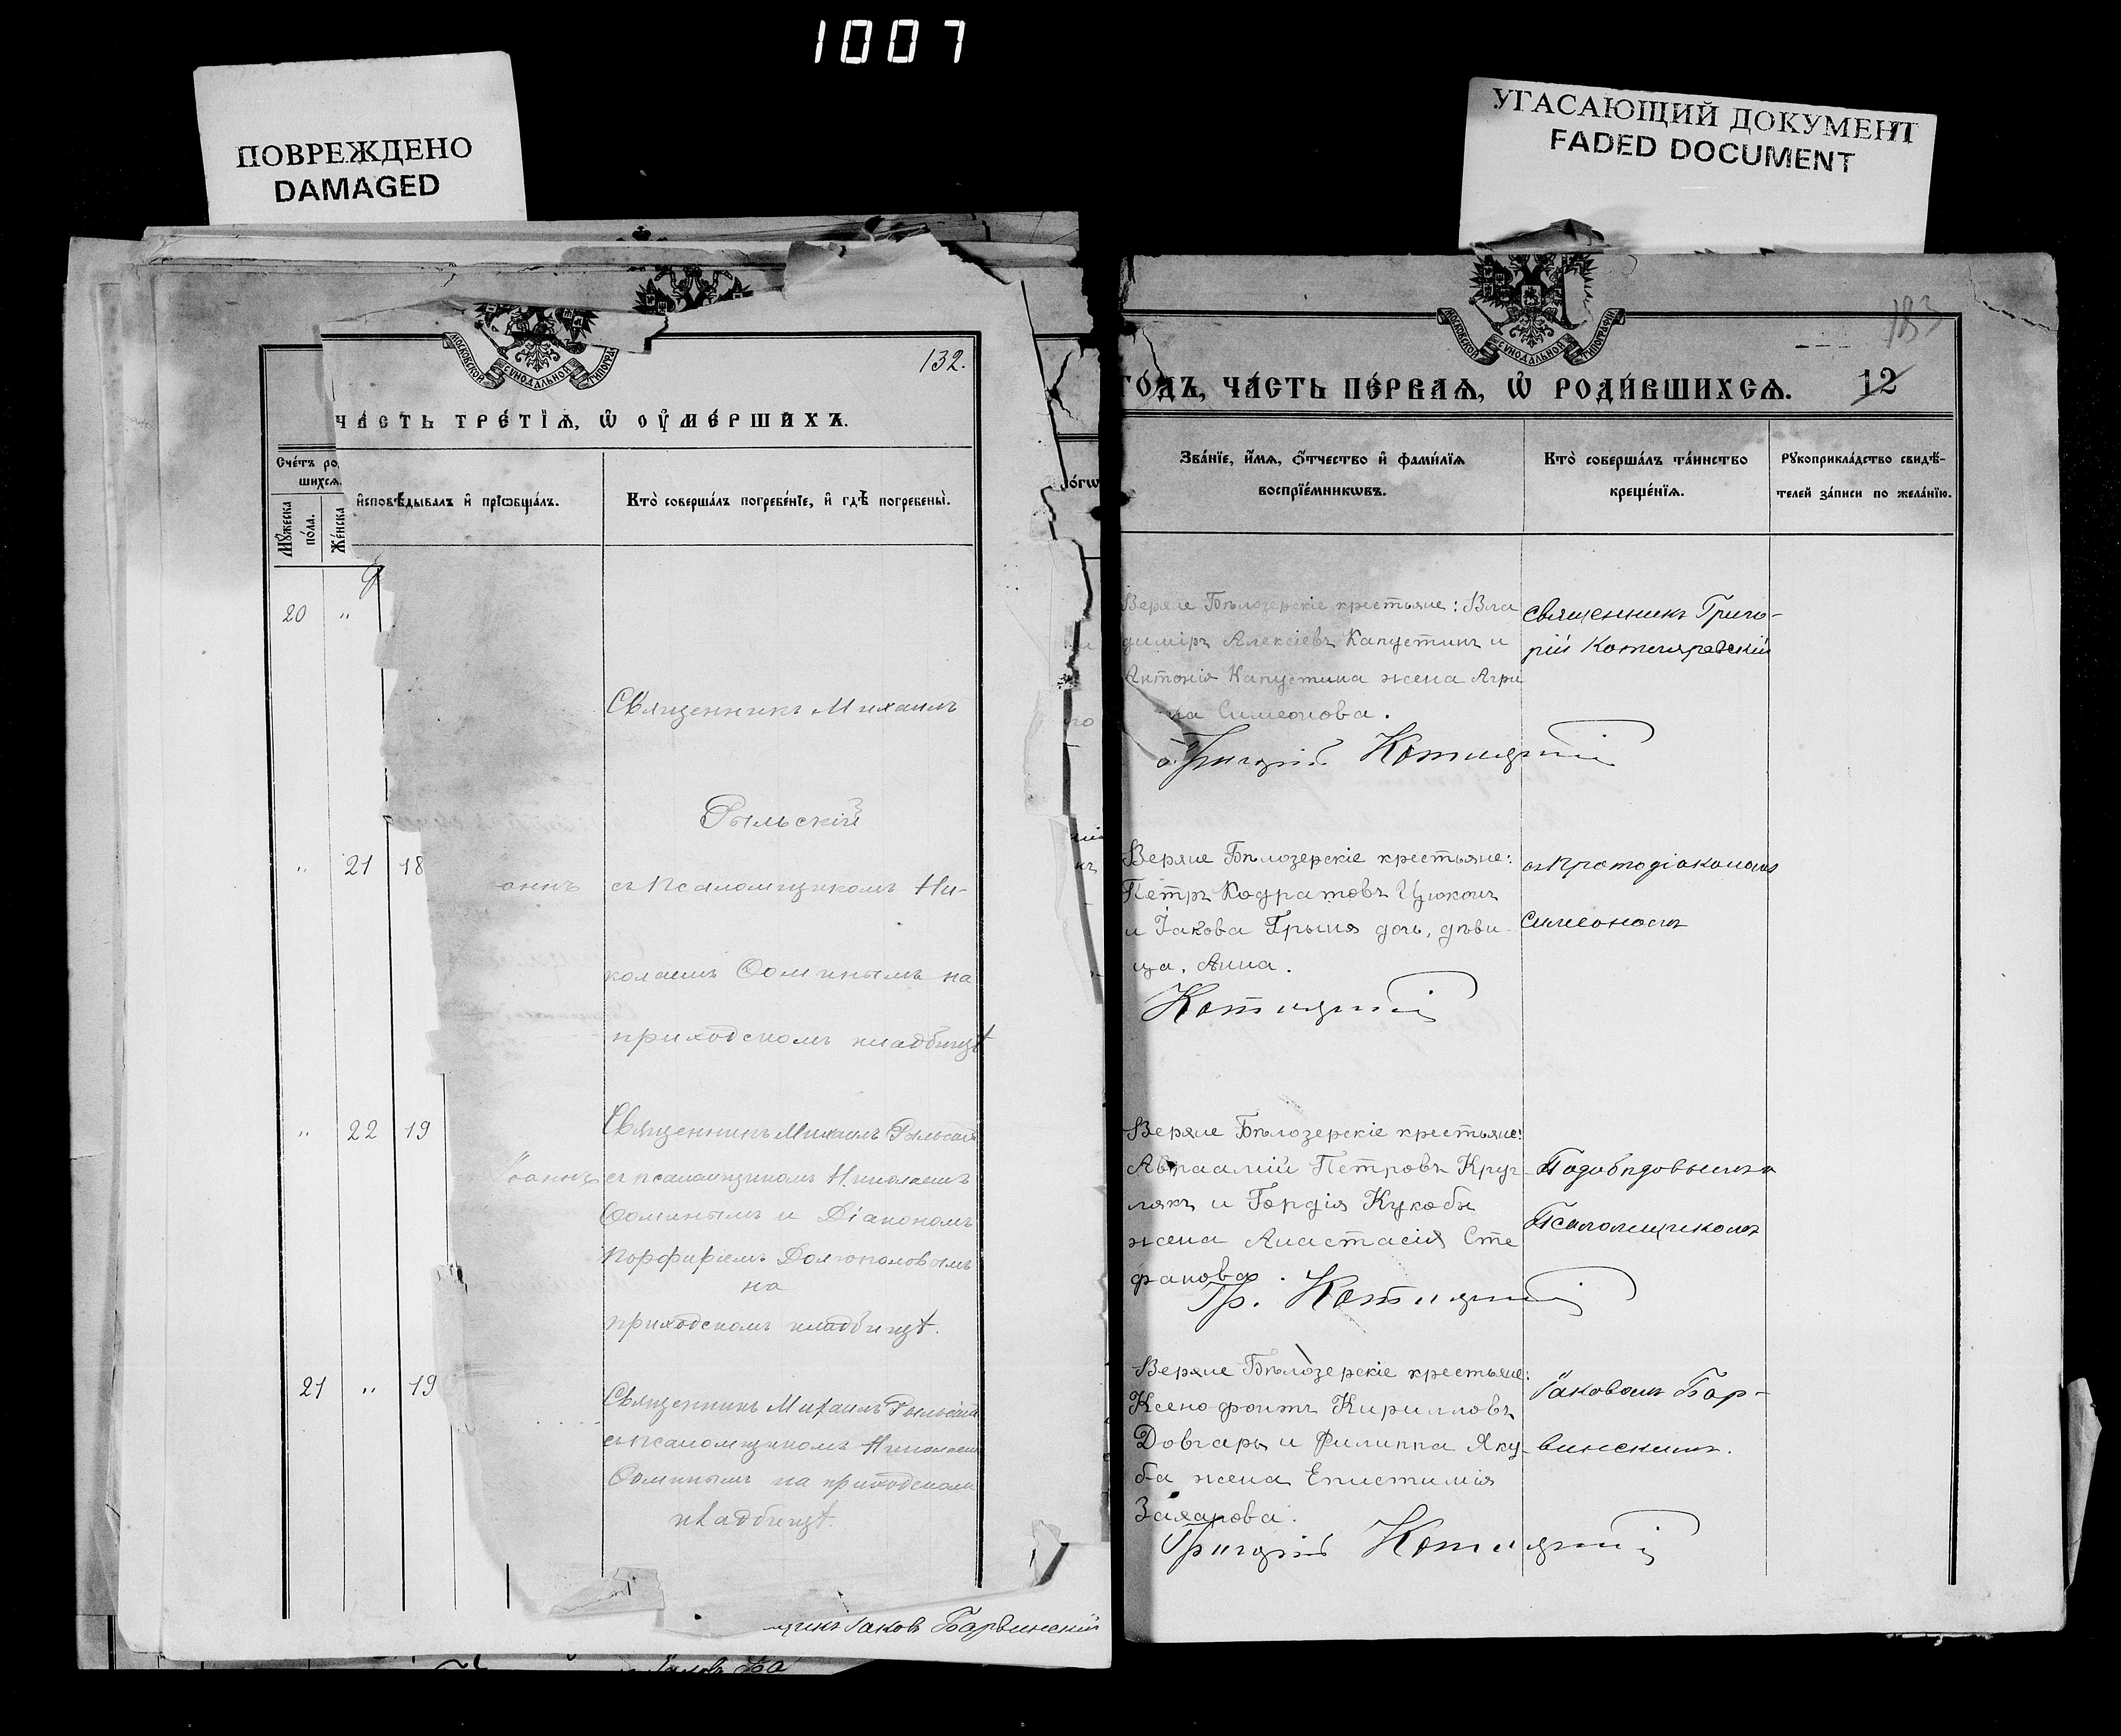 1007
ПОВРЕЖДЕНО
DAMAGED
УГАСАЮЩИЙ ДОКУМЕНТ
FADED DOCUMENT
МОСКОВСКОЙ СѴНОДАЛЬНОЙ ТИПОГРАФІИ
132.
ЧА́СТЬ ТРЕ́ТЇѦ, Ѡ҆ ОУ҆МЕ́РШИХЪ.
Сче́тъ ро
шихсѧ.
Мꙋ́жеска по́ла.
Же́нска
и҆сповѣ́дывалъ и҆ прїѡбща́лъ.
Кто̀ соверша́лъ погребе́нїе, и҆ гдѣ̀ погребены̀.
20 "
Священникъ Михаилъ
Рыльскій
" 21 18
оаннъ съ псаломщикомъ Ни-
колаемъ Ѳоминымъ на
приходскомъ кладбищѣ
" 22 19
Священникъ Михаилъ Рыльскій
Іоаннъ съ псаломщикомъ Николаемъ
Ѳоминымъ и Діакономъ
Порфиріемъ Долгополовымъ
на
приходскомъ кладбищѣ.
21 " 19
Священникъ Михаилъ Рыльскій
съ псаломщикомъ Николаемъ
Ѳоминымъ на приходскомъ
кладбищѣ.
щикъ Іаковъ Барвинскій
МОСКОВСКОЙ СѴНОДАЛЬНОЙ ТИПОГРАФІИ
183
ГО́ДЪ, ЧА́СТЬ ПЕ́РВАѦ, Ѡ҆ РОДИ́ВШИХСѦ.
12
Зва́нїе, и҆́мѧ, ѻ҆́тчество и҆ фами́лїѧ
воспрїе́мникѡвъ.
Кто̀ соверша́лъ та́инство
креще́нїѧ.
Рꙋкоприкла́дство свидѣ́-
телей за́писи по жела́нїю.
Веряне Бѣлозерскіе крестьяне: Вла
димiръ Алексіевъ Капустинъ и
Антонія Капустина жена Агри
на Симеонова.
Григорій
Священникъ Григо-
рій Котляревскій
Веряне Бѣлозерскіе крестьяне:
Петръ Кодратовъ Цюкон
и Іакова Грыня дочь, дѣви
ца, Анна.
съ Протодіакономъ
Симеономъ
Веряне Бѣлозерскіе крестьяне:
Авраамій Петровъ Круг
лякъ и Гордія Кукобы
жена Анастасія Сте
фанова.
Гр.
Подобѣдовымъ и
Псаломщикомъ
Веряне Бѣлозерскіе крестьяне:
Ксенофонтъ Кирилловъ
Довгаръ и Филиппа Яку
ба жена Епистимія
Захарова.
Григорій
Іаковомъ Бар-
винскимъ.